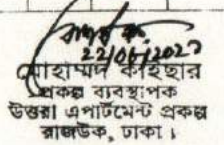 22/06/2023
মোহাম্মদ কাইছার
প্রকল্প ব্যবস্থাপক
উত্তরা এপার্টমেন্ট প্রকল্প
রাজউক, ঢাকা।